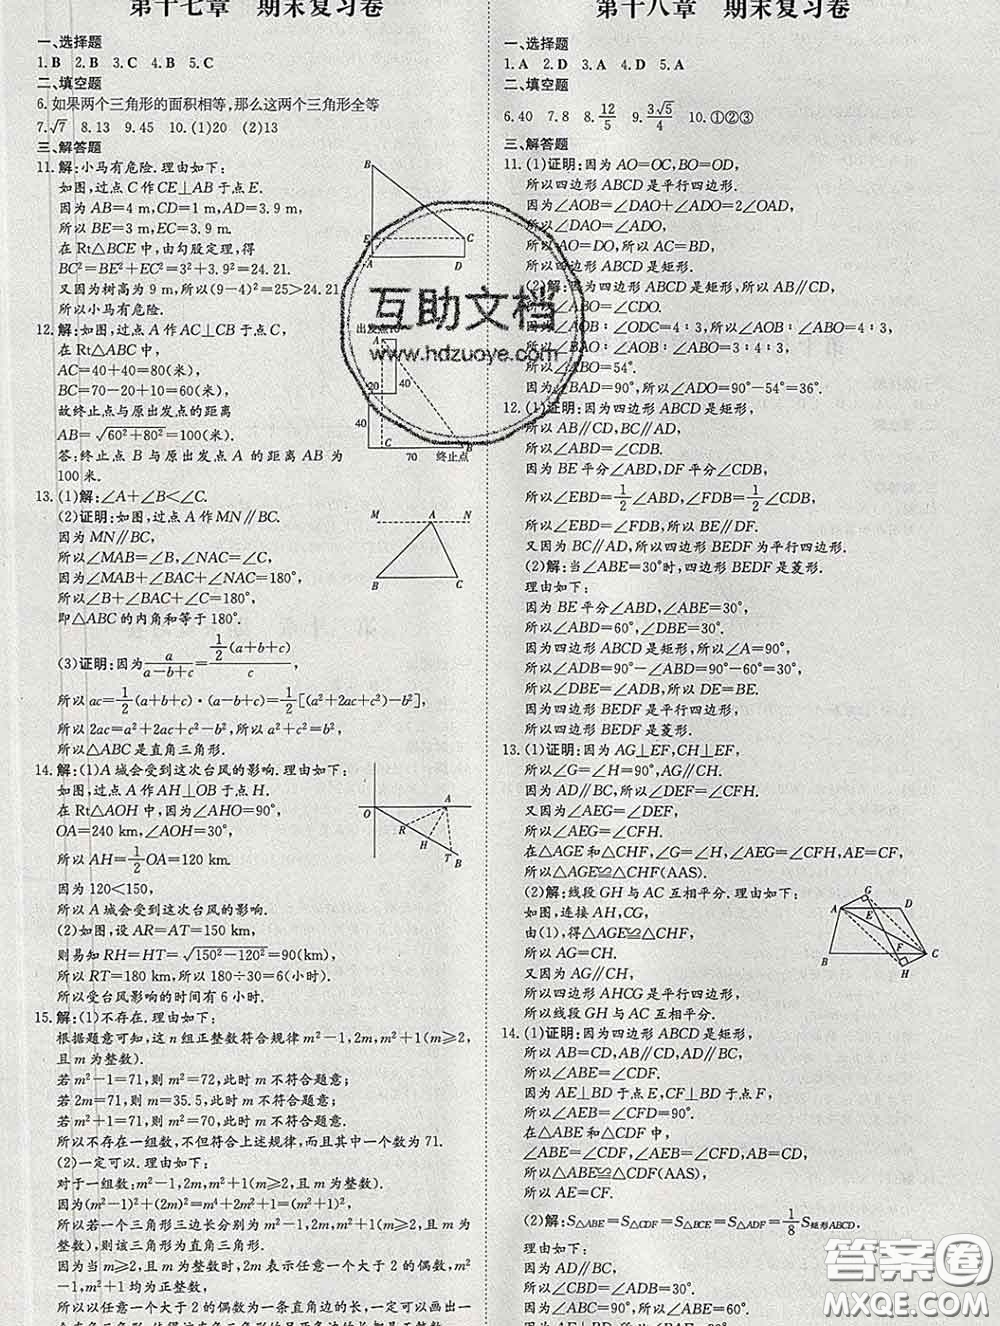 第十七章 期末复习卷
一、选择题
1.B 2.B 3.C 4.B 5.C
二、填空题
6.如果两个三角形的面积相等,那么这两个三角形全等
7.√7 8.13 9.45 10.(1)20 (2)13
三、解答题
11.解:小马有危险.理由如下:
如图,过点C作CE⊥AB于点E.
因为AB=4 m,CD=1 m,AD=3.9 m,
所以BE=3 m,EC=3.9 m.
在Rt△BCE中,由勾股定理,得
BC²=BE²+EC²=3²+3.9²=24.21.
又因为树高为9 m,所以(9-4)²=25>24.21
所以小马有危险.
B
E
C
A
D
12.解:如图,过点A作AC⊥CB于点C,
在Rt△ABC中,
AC=40+40=80(米),
BC=70-20+10=60(米),
故终止点与原出发点的距离
AB=√(60²+80²)=100(米).
答:终止点B与原出发点A的距离AB为
100米.
出发点10
A
20
40
40
C
B
70 终止点
13.(1)解:∠A+∠B<∠C.
(2)证明:如图,过点A作MN∥BC.
因为MN∥BC,
所以∠MAB=∠B,∠NAC=∠C,
因为∠MAB+∠BAC+∠NAC=180°,
所以∠B+∠BAC+∠C=180°,
即△ABC的内角和等于180°.
M A N
B C
(3)证明:因为a/(a-b+c)=½(a+b+c)/c,
所以ac=½(a+b+c)·(a-b+c)=½[(a²+2ac+c²)-b²],
所以2ac=a²+2ac+c²-b²,所以a²+c²=b²,
所以△ABC是直角三角形.
14.解:(1)A城会受到这次台风的影响.理由如下:
如图,过点A作AH⊥OB于点H.
在Rt△AOH中,因为∠AHO=90°,
OA=240 km,∠AOH=30°,
所以AH=½OA=120 km.
因为120<150,
所以A城会受到这次台风的影响.
(2)如图,设AR=AT=150 km,
则易知RH=HT=√(150²-120²)=90(km),
所以RT=180 km,所以180÷30=6(小时).
所以受台风影响的时间有6小时.
O
A
R
H
T
B
15.解:(1)不存在.理由如下:
根据题意可知,这n组正整数符合规律m²-1,2m,m²+1(m≥2,
且m为整数).
若m²-1=71,则m²=72,此时m不符合题意;
若2m=71,则m=35.5,此时m不符合题意;
若m²+1=71,则m²=70,此时m不符合题意,
所以不存在一组数,不但符合上述规律,而且其中一个数为71.
(2)一定可以.理由如下:
对于一组数:m²-1,2m,m²+1(m≥2,且m为整数).
因为(m²-1)²+(2m)²=m⁴+2m²+1=(m²+1)²,
所以若一个三角形三边长分别为m²-1,2m,m²+1(m≥2,且m为
整数),则该三角形为直角三角形.
因为当m≥2,且m为整数时,2m表示任意一个大于2的偶数,m²-
1,m²+1均为正整数,
所以以任意一个大于2的偶数为一条直角边的长,一定可以画出一
第十八章 期末复习卷
一、选择题
1.A 2.D 3.A 4.D 5.A
二、填空题
6.40 7.8 8.12/5 9.3√5/4 10.①②③
三、解答题
11.(1)证明:因为AO=OC,BO=OD,
所以四边形ABCD是平行四边形.
因为∠AOB=∠DAO+∠ADO=2∠OAD,
所以∠DAO=∠ADO,
所以AO=DO,所以AC=BD,
所以四边形ABCD是矩形.
(2)解:因为四边形ABCD是矩形,所以AB∥CD,
所以∠ABO=∠CDO.
因为∠AOB∶∠ODC=4∶3,
所以∠AOB∶∠ABO=4∶3,
所以∠BAO∶∠AOB∶∠ABO=3∶4∶3,
所以∠ABO=54°.
因为∠BAD=90°,所以∠ADO=90°-54°=36°.
12.(1)证明:因为四边形ABCD是矩形,
所以AB∥CD,BC∥AD,
所以∠ABD=∠CDB.
因为BE平分∠ABD,DF平分∠CDB,
所以∠EBD=½∠ABD,∠FDB=½∠CDB,
所以∠EBD=∠FDB,所以BE∥DF.
又因为BC∥AD,所以四边形BEDF为平行四边形.
(2)解:当∠ABE=30°时,四边形BEDF是菱形.
理由如下:
因为BE平分∠ABD,∠ABE=30°,
所以∠ABD=60°,∠DBE=30°.
因为四边形ABCD是矩形,所以∠A=90°,
所以∠ADB=90°-∠ABD=90°-60°=30°,
所以∠DBE=∠ADB,所以DE=BE.
因为四边形BEDF是平行四边形,
所以四边形BEDF是菱形.
13.(1)证明:因为AG⊥EF,CH⊥EF,
所以∠G=∠H=90°,AG∥CH.
因为AD∥BC,所以∠DEF=∠BFE.
又因为∠AEG=∠DEF,
所以∠AEG=∠CFH.
在△AGE和△CHF中,∠G=∠H,∠AEG=∠CFH,AE=CF,
所以△AGE≌△CHF(AAS).
(2)解:线段GH与AC互相平分.理由如下:
如图,连接AH,CG,
由(1),得△AGE≌△CHF,
所以AG=CH.
又因为AG∥CH,
所以四边形AHCG是平行四边形,
所以AC与GH互相平分.
G
A
E
D
F
B
H
C
14.(1)证明:因为四边形ABCD是矩形,
所以AB=CD,AB∥CD,AD∥BC,
所以∠ABE=∠CDF.
因为AE⊥BD于点E,CF⊥BD于点F,
所以∠AEB=∠CFD=90°.
在△ABE和△CDF中,
∠ABE=∠CDF,∠AEB=∠CFD,AB=CD,
所以△ABE≌△CDF(AAS),
所以AE=CF.
(2)解:S△ABE=S△CDF=S△BCE=S△ADF=⅛S矩形ABCD.
理由如下:
因为AD∥BC,
所以∠CBD=∠ADB=30°.
因为∠ABC=90°,所以∠ABE=60°.
互助文档
www.hdzuoye.com
答案圈
MXQE.COM